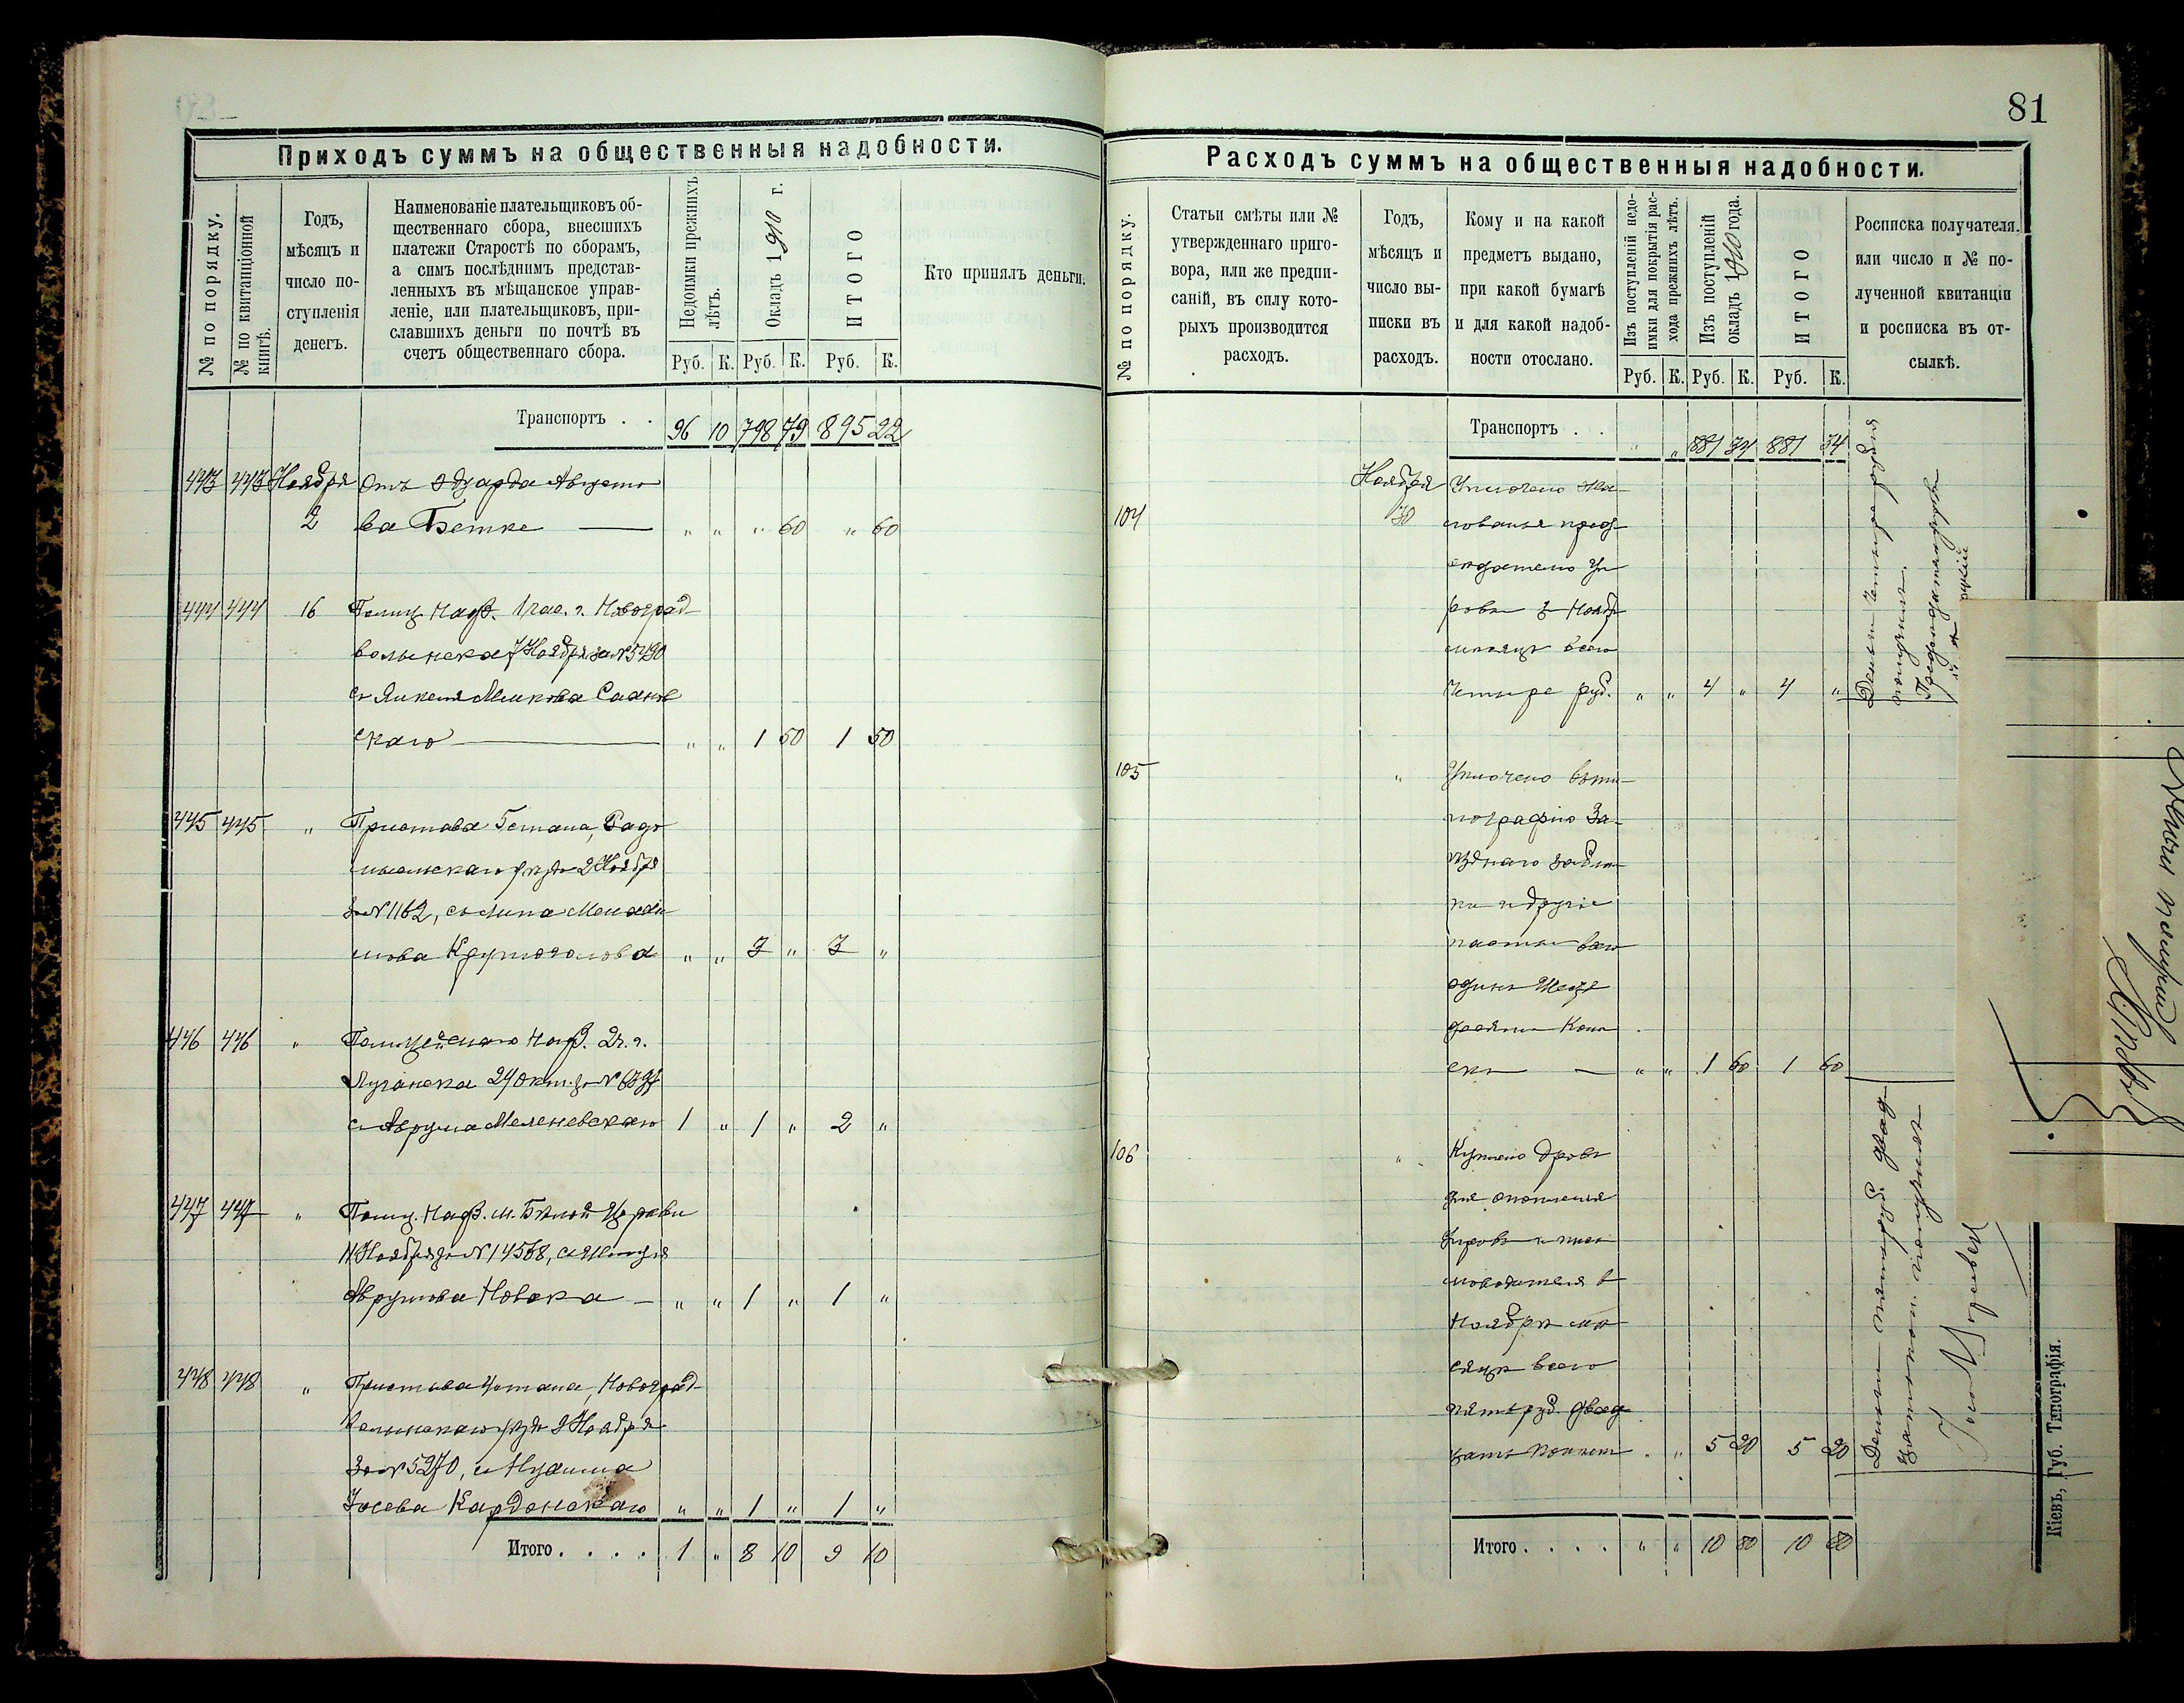 81
Приходъ суммъ на общественныя надобности.
№ по порядку.
№ по квитанціонной книгѣ.
Годъ,
мѣсяцъ и
число по-
ступленія
денегъ.
Наименованіе плательщиковъ об-
щественнаго сбора, внесшихъ
платежи Старостѣ по сборамъ,
а симъ послѣднимъ представ-
ленныхъ въ мѣщанское управ-
леніе, или плательщиковъ, при-
славшихъ деньги по почтѣ въ
счетъ общественнаго сбора.
Недоимки прежнихъ лѣтъ.
Окладъ 1910 г.
ИТОГО
Кто принялъ деньги.
Руб. К. Руб. К. Руб. К.
Транспортъ . . 96 10 798 79 895 22
443 443 Ноября Отъ Эдуарда Августо
2 ва Бетке — " " " 60 " 60
444 444 16 Полиц. Надз. 1 час. г. Новоград-
волынска 7 Ноября за № 5490
съ Янкеля
скаго — " " 1 50 1 50
445 445 " Пристава 5 стана, Радо
мысльскаго уѣзда 2 Ноября
за № 1162, съ
мова Круглоголова " " 3 " 3 "
446 446 " Полицейскаго Надз. 2 ч. г.
Луганска 24 окт. за №
съ Аврума Меленевскаго 1 " 1 " 2 "
447 447 " Полиц. Надз. м. Бѣлой Церкви
11 Ноября за № 14568, съ
Аврумова Новака — " " 1 " 1 "
448 448 " Пристава 4 стана, Новоград-
Волынскаго уѣзда 9 Ноября
За № 5270, съ Нухима
Іосева Кардонскаго " " 1 " 1 "
Итого . . . . 1 " 8 10 9 10
Расходъ суммъ на общественныя надобности.
№ по порядку.
Статьи смѣты или №
утвержденнаго приго-
вора, или же предпи-
саній, въ силу кото-
рыхъ производится
расходъ.
Годъ,
мѣсяцъ и
число вы-
писки въ
расходъ.
Кому и на какой
предметъ выдано,
при какой бумагѣ
и для какой надоб-
ности отослано.
Изъ поступленій недо-
имки для покрытія рас-
хода прежнихъ лѣтъ.
Изъ поступленій
окладъ 1910 года.
ИТОГО
Росписка получателя,
или число и № по-
лученной квитанціи
и росписка въ от-
сылкѣ.
Руб. К. Руб. К. Руб. К.
Транспортъ . . " " 881 34 881 34
Ноября Уплочено жа-
104 30 лованья пред-
сѣдателю Уп
равы за Ноябрь
мѣсяцъ всего
Четыре руб. " " 4 " 4 "
Деньги четыре рубля
получилъ.
105 " Уплочено въ ти-
пографію За-
ѣзднаго за блан-
ки и другіе
всего
одинъ Шесть
десятъ Копѣ
екъ — " " 1 60 1 60
Деньги получилъ
106 " Куплено дровъ
для отопленія
Управы и пись
моводителя въ
Ноябрѣ мѣ
сяцѣ всего
пять руб. двад
цать копѣекъ . " 5 20 5 20
Деньги пять руб. двад
цать коп. получилъ
Итого . . . . " " 10 80 10 80
Кіевъ, Губ. Типографія.